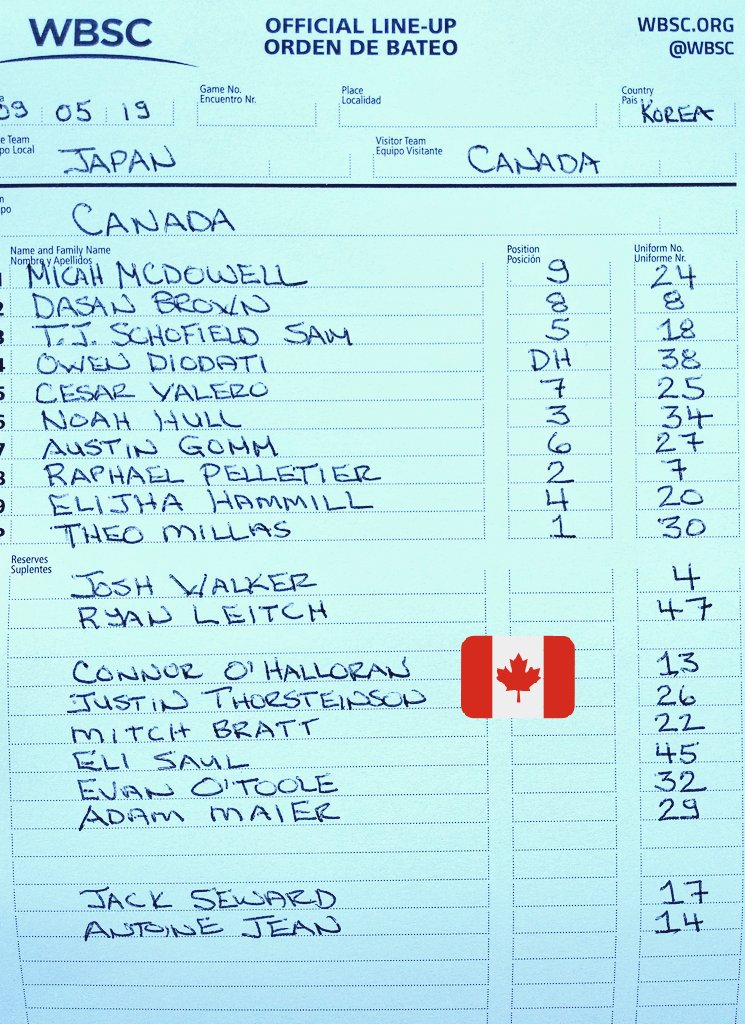 WBSC OFFICIAL LINE-UP WBSC.ORG
ORDEN DE BATEO @WBSC
Game No. Place Country
Encuentro Nr. Localidad País KOREA
09 05 19
Team Visitor Team
Local JAPAN Equipo Visitante CANADA
CANADA
Name and Family Name Position Uniform No.
Nombre y Apellidos Posición Uniforme Nr.
MICAH MCDOWELL 9 24
2 DASAN BROWN 8 8
3 T.J. SCHOFIELD SAM 5 18
4 OWEN DIODATI DH 38
5 CESAR VALERO 7 25
6 NOAH HULL 3 34
7 AUSTIN GOMM 6 27
8 RAPHAEL PELLETIER 2 7
9 ELIJHA HAMMILL 4 20
P THEO MILLAS 1 30
Reserves
Suplentes
JOSH WALKER 4
RYAN LEITCH 47
CONNOR O'HALLORAN 13
JUSTIN THORSTEINSON 26
MITCH BRATT 22
ELI SAUL 45
EVAN O'TOOLE 32
ADAM MAIER 29
JACK SEWARD 17
ANTOINE JEAN 14